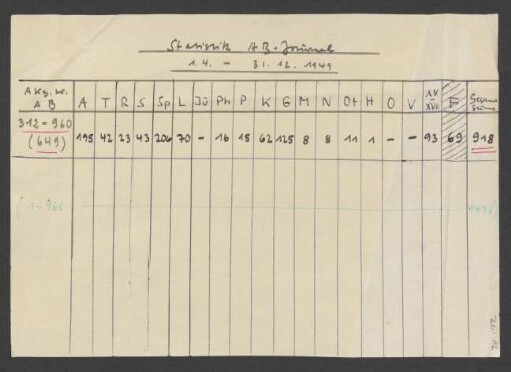 Statistik AB-Journal
1.4. - 31.12.1949
Akz. Nr. AB A T R S Sp L Jü Ph P K G M N Ot H O V XV-XVII F Gesamtsumme
312-960 (649) 195 42 23 43 206 70 - 16 15 62 125 8 8 11 1 - - 93 69 918
(1-960